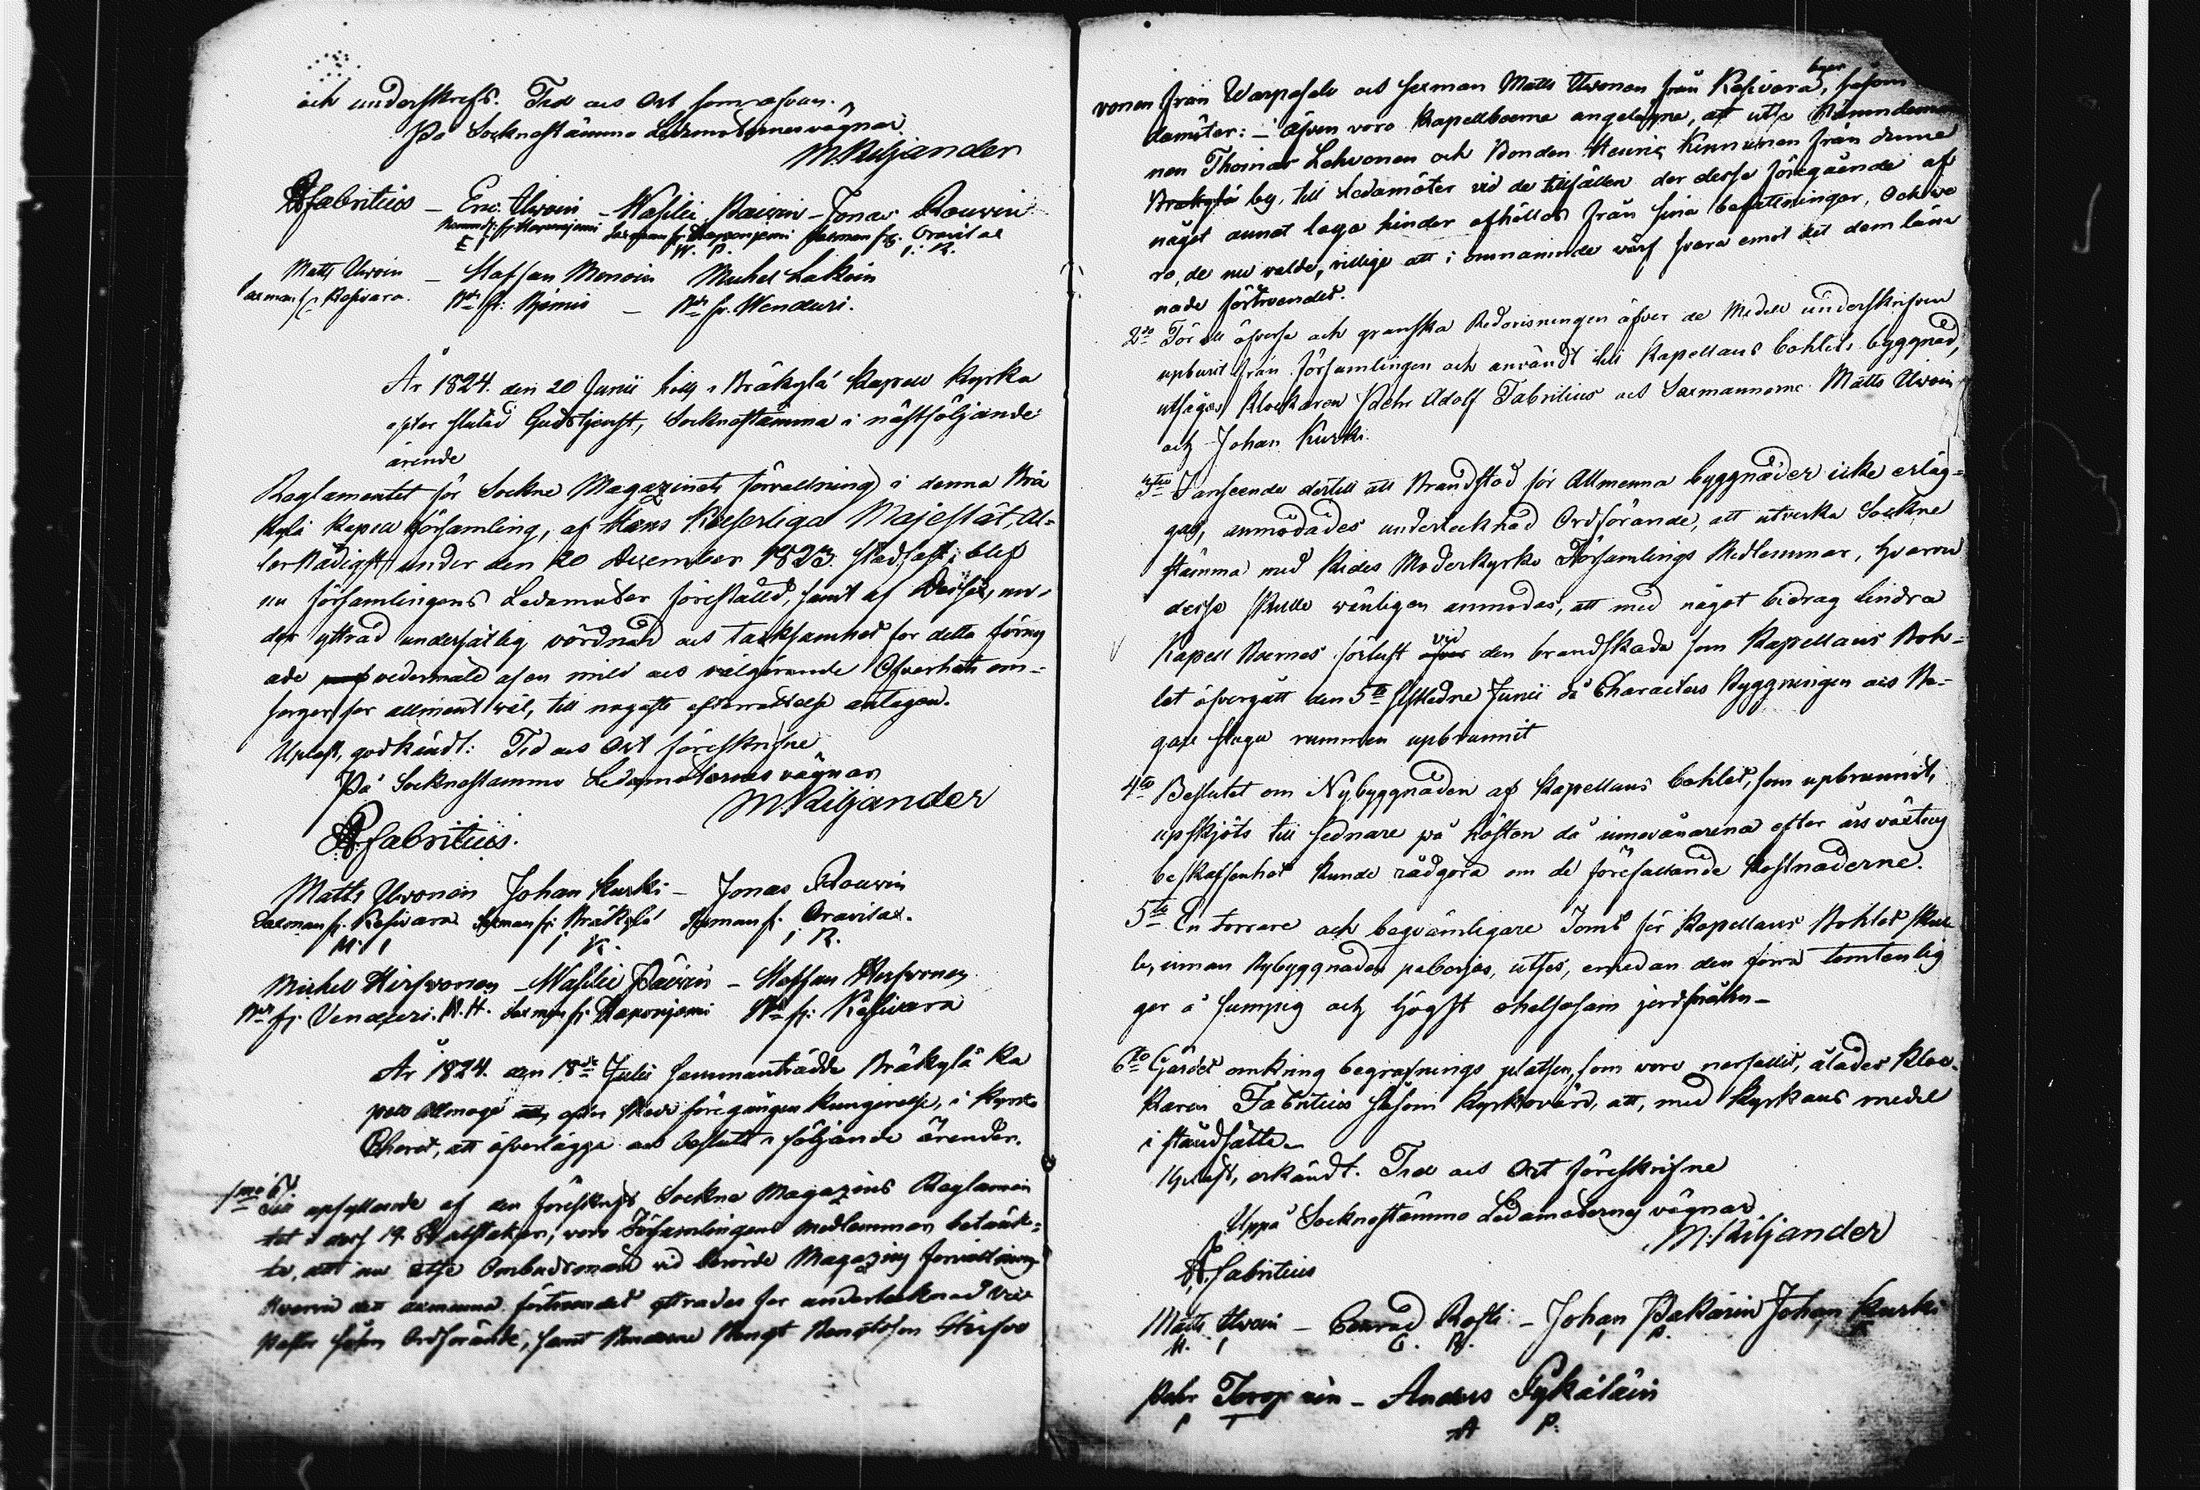 och underskrefs. Tid och Ort som ofvan.
På Socknestämmo Ledamöternes vägnar
M. Kiljander
A Fabritius – Eric Uwoin – Wasilie Raiwin – Jonas Rouwin
Nämndm: fr. Haponjemi Sexman fr. Haponjemi Sexman fr. Oravilax
E W. P. I. R.
Matts Uwoin – Staffan Monoin Michel Lakoin
Sexman fr. Kesivara. Bdn fr. Rämis – Bdn fr. Wenduri.
År 1824. den 20 Junii höls i Bräkylä Kapell Kyrka
efter slutad Gudstjenst, Socknestämma i nästföljande
ärende
Reglementet för Sockne Magazinets förvaltning i denna Brä
kylä Kapell församling, af Hans Kejserliga Majestät Al-
lernådigst under den 20 December 1823. stadfäst; blef
nu församlingens Ledamöter föreståld, samt af desse, un-
der yttrad undersåtlig vördnad och tacksamhet för detta förny
ade vedermäle af en mild och välgörande Öfverhets om-
sorger för allmänt väl, till nogaste efterrättelse antagen.
Uplest, godkändt: Tid och Ort föreskrifne
På Socknestämmo Ledamöternes vägnar
M Kiljander
A Fabritius.
Matts Uwonen Johan Kurki – Jonas Rouwin
Sexman fr. Kesivara Sexman fr. Bräkylä Sexman fr. Oravilax.
M. I I K. I R.
Michel Hirfwonen – Wasilie Raiwin – Staffan Hirfwonen
Bdn fr. Venduri. M. H. Sexman fr. Haponjemi Bdn fr. Kesivara
År 1824. den 18de Julii sammanträdde Bräkylä Ka
pell Allmoge efter skedd föregången kungörelse, i Kyrko
Choret, att öfverlägga och besluta i följande ärender.
1mo Till upfyllande af den föreskrift Sockne Magazins Reglemen
tet i dess 19. § utstakar, voro Församlingens medlemmar betänk-
te, att nu utse Ombudsmän vid berörde Magazins förvaltning
Hvarvid det allmänna förtroendet yttrades för undertecknad Vice
Pastor såsom Ordförande, samt Bönderne Bengt Bengtsson Hirfvo
nonen från Warpaselv och Sexman Matts Uwonen från Kesivara byar, såsom
Ledamöter: – Äfven voro Kapellboerne angelägne, att utse Nämndeman
nen Thomas Lehvonen och Bonden Henric Kinnunen från denne
Bräkylä by, till Ledamöter vid de tillfällen der desse föregående af
något annat laga hinder afhålles från sina befattningar, Och vo
ro, de nu valde, villige att i omnämnde värf svara emot det dem läm
nade förtroendet.
2do För att öfverse och granska Redovisningen öfver de Medel underskrifven
upburit från församlingen och användt till Kapellans bohlets byggnad,
utsågos Klockaren Pehr Adolf Fabritius och Sexmannerne Matts Uwoin
och Johan Kurki.
3tio I anseende dertill att Brandstod för Allmenna byggnader icke erläg-
ges, anmodades undertecknad Ordförande, att utverka Sockne
stämma med Kides Moderkyrko Församlings Medlemmar, hvarvid
desse skulle vänligen anmodas, att med något bidrag lindra
Kapell Boernes förlust vid den brandskada som Kapellans Boh-
let öfvergått den 5te sistledne Junii då Characters Byggningen och Bo-
gare stugu rummen upbrunnit
4to Beslutet om Nybyggnaden af Kapellans bohlet, som upbrunnit,
upskjöts till sednare på hösten då innevånarena efter års växtens
beskaffenhet kunde rådgöra om de förefallande kostnaderne.
5te En torrare och beqvämligare Tomt för Kapellans Bohlet skul
le, innan Nybyggnaden påbörjas, utses, emedan den förra tomten lig
ger å sumpig och högst ohelsosam jordmån –
6to Gärdet omkring begrafnings platsen, som vore nerfallit, ålades Kloc-
karen Fabritius såsom Kyrkovärd, att, med Kyrkans medel
i ståndsätta –
Uplest, erkändt. Tid och Ort föreskrifne
Uppå Socknestämmo Ledamöternes vägnar
M. Kiljander
A Fabritius
Matts Uwoin – Conrad Rosti – Johan Pakarin Johan Kurki
M. I C. R. I P. K
Pehr Toropain – Anders Pykäläin
P T A P.